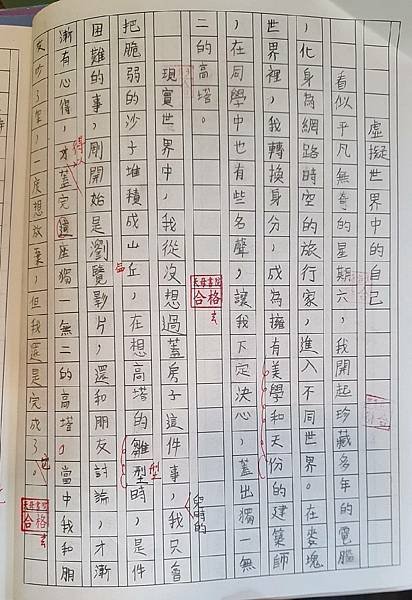 虛擬世界中的自己
看似平凡無奇的星期六，我開起珍藏多年的電腦
，化身為網路時空的旅行家，進入不同世界。在麥塊
世界裡，我轉換身分，成為擁有美學和天份的建築師
，在同學中也有些名聲，讓我下定決心，蓋出獨一無
二的高塔。
現實世界中，我從沒想過蓋房子這件事，我只會
兒時的
把脆弱的沙子堆積成山丘，在想高塔的雛型時，是件
型
困難的事，剛開始是瀏覽影片，還和朋友討論，才漸
漸有心得，才蓋完這座獨一無二的高塔。當中我和朋
得以
友吵了架，一度想放棄，但我還是完成了。
合格
合格